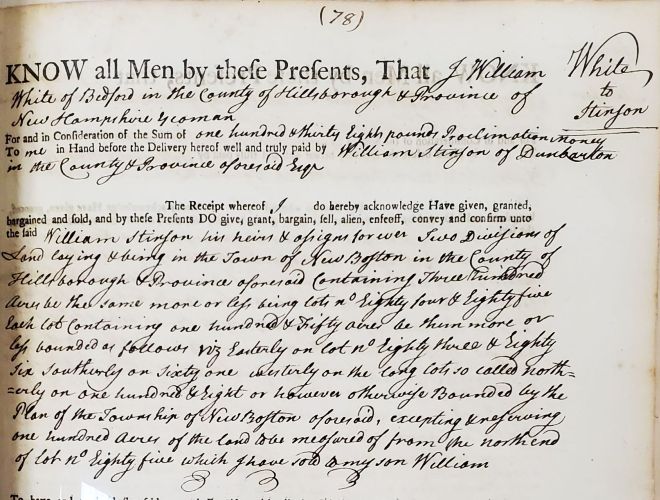 (78)
KNOW all Men by these Presents, That I William
White
to
Stinson
White of Bedford in the County of Hillsborough & Province of
New Hampshire yeoman
For and in Consideration of the Sum of one hundred & thirty Eight pounds Proclimation money
To me in Hand before the Delivery hereof well and truly paid by William Stinson of Dunbarton
in the County & Province aforesaid Esqr
The Receipt whereof I do hereby acknowledge Have given, granted,
bargained and sold, and by these Presents DO give, grant, bargain, sell, alien, enfeoff, convey and confirm unto
the said William Stinson his heirs & assigns forever Two Divisions of
Land laying & being in the Town of New Boston in the County of
Hillsborough & Province aforesaid Containing Three Hundred
Acres be the same more or less being lots no Eighty four & Eighty five
Each lot Containing one hundred & Fifty acres be them more or
less bounded as follows viz Easterly on lot no Eighty three & Eighty
Six Southerly on Sixty one westerly on the long lots so called north=
=erly on one hundred & Eight or however otherwise Bounded by the
Plan of the Township of New Boston aforesaid, excepting & reserving
one hundred Acres of the land to be measured of from the north end
of lot no Eighty five which I have sold to my son William